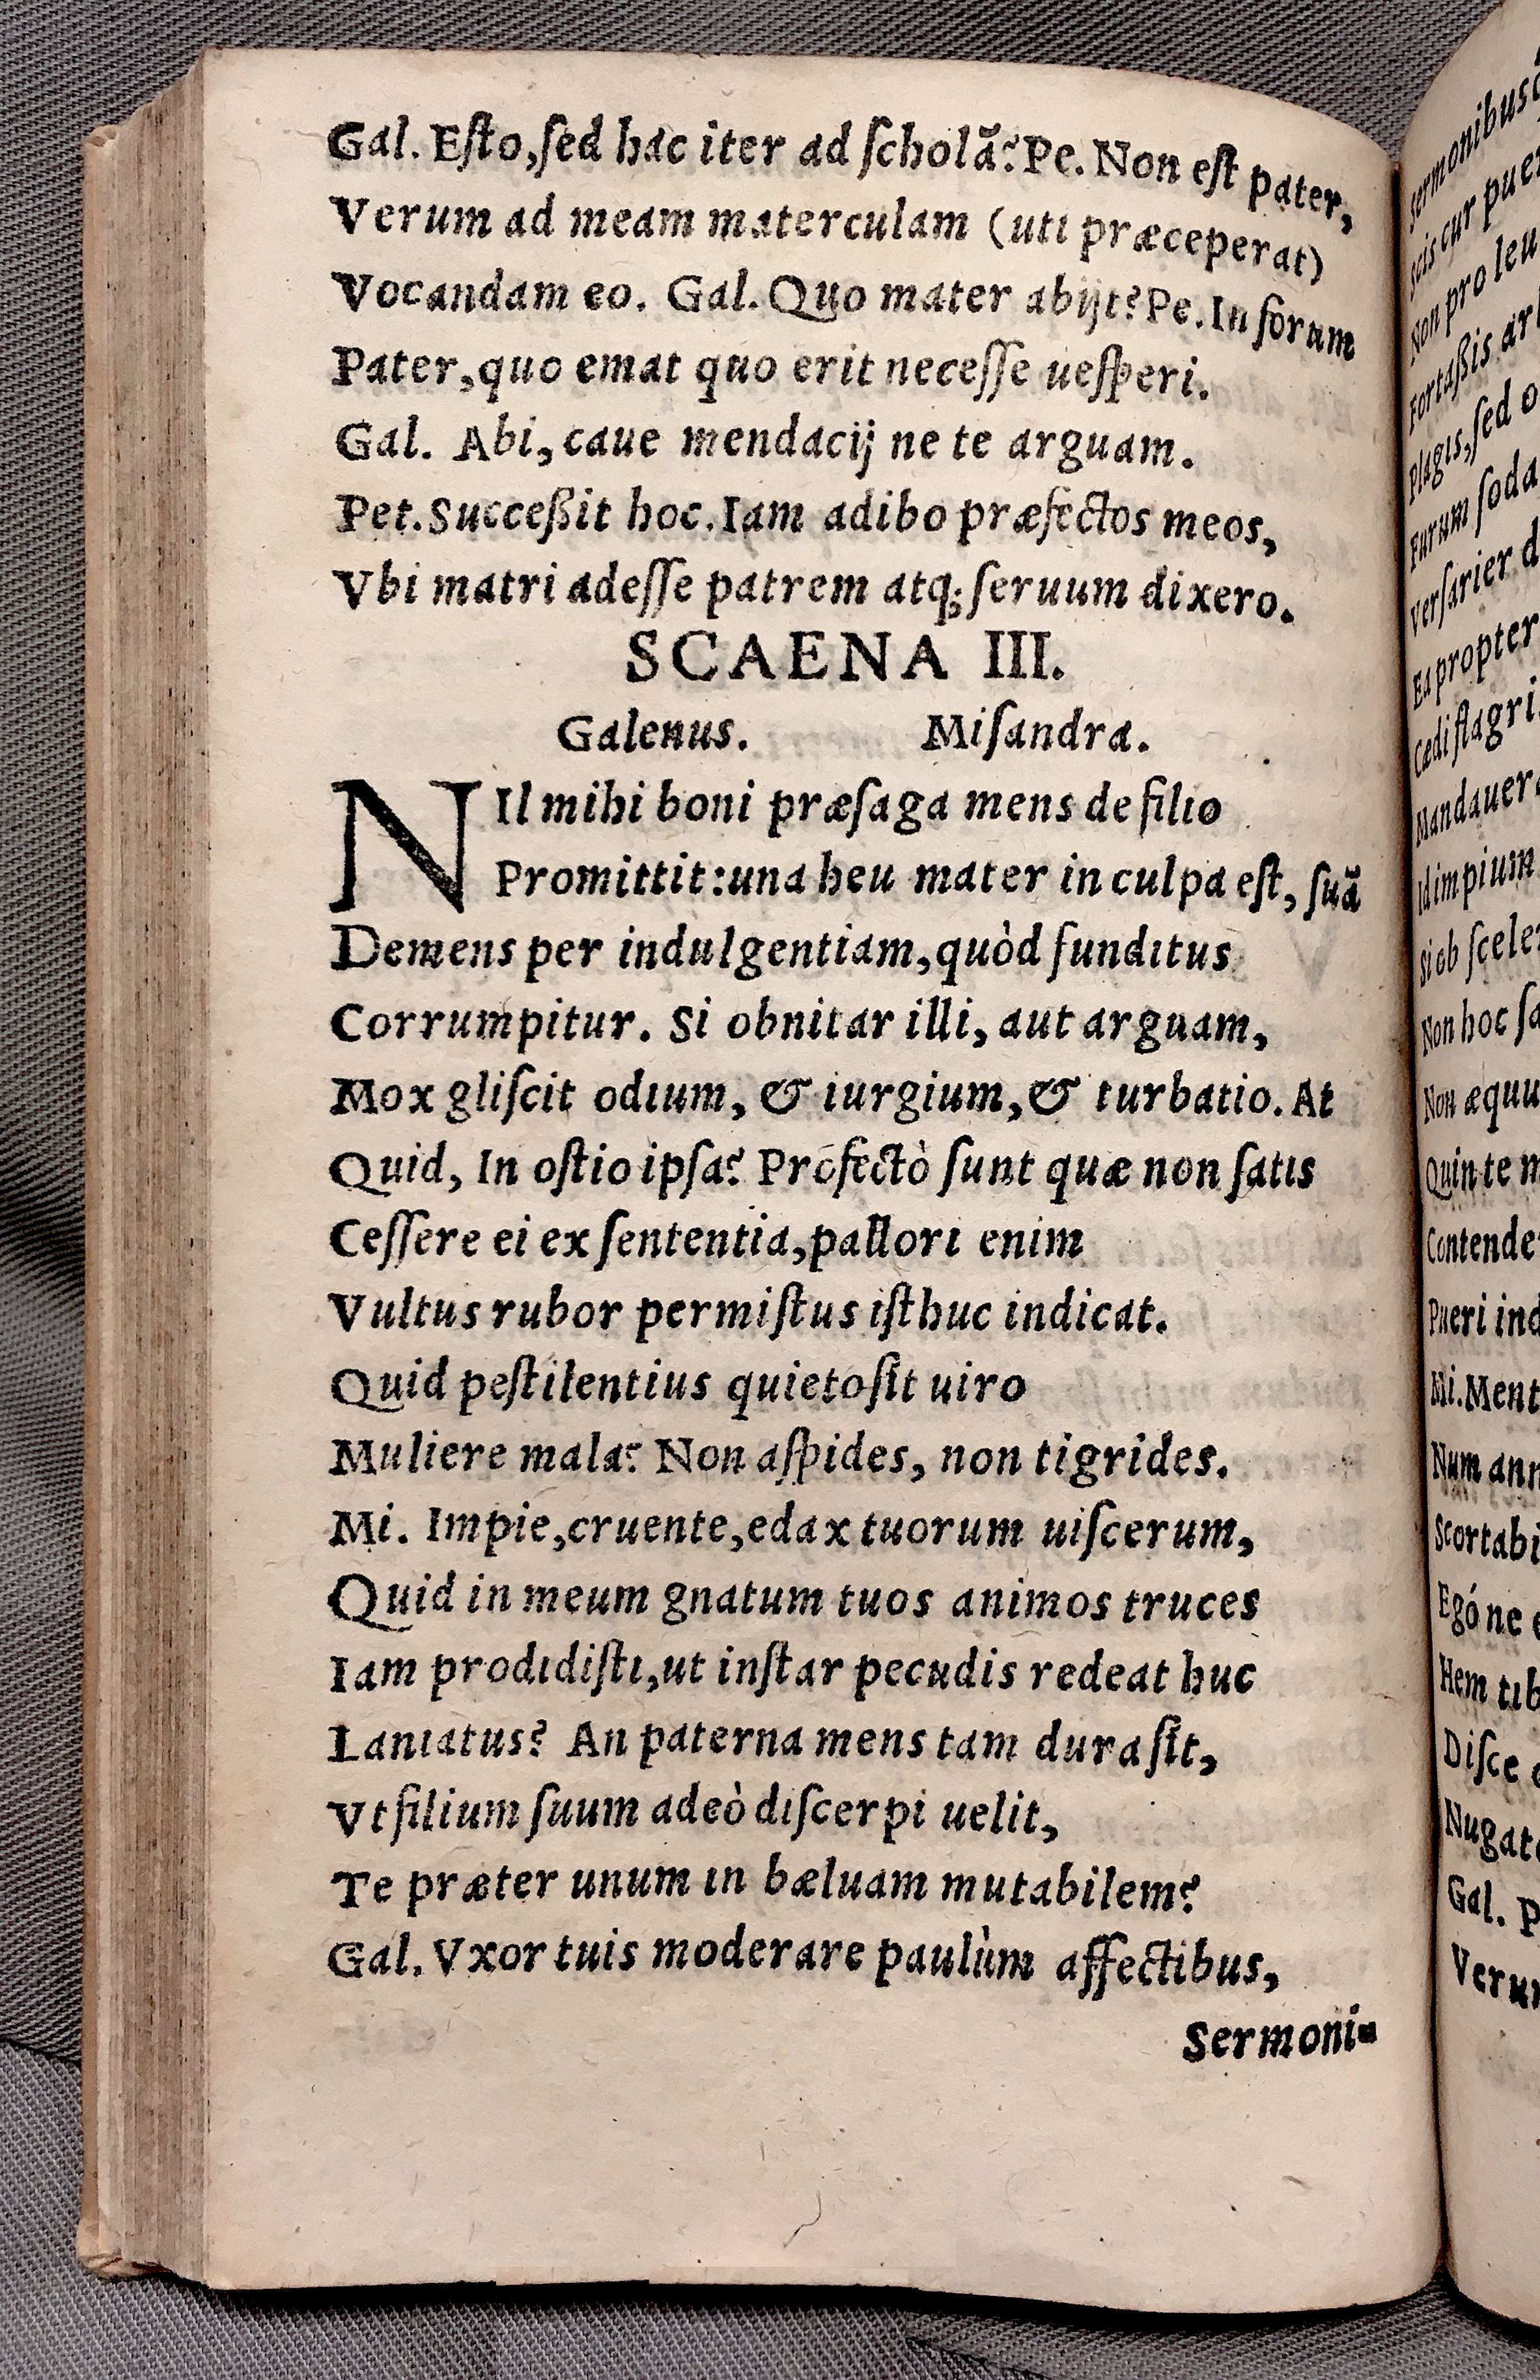 Gal. Eſto,ſed hac iter ad ſcholã? Pe. Non eſt pater,
Verum ad meam materculam (uti præceperat)
Vocandam eo. Gal. Quo mater abijt? Pe. In forum
Pater, quo emat quo erit neceſſe ueſperi.
Gal. Abi, caue mendacij ne te arguam.
Pet. Succeßit hoc. Iam adibo præfectos meos,
Vbi matri adeſſe patrem atq; ſeruum dixero.
SCAENA III.
Galenus. Miſandra.
NIl mihi boni præſaga mens de filio
Promittit: una heu mater in culpa eſt, ſuã
Demens per indulgentiam, quòd funditus
Corrumpitur. Si obnitar illi, aut arguam,
Mox gliſcit odium, & iurgium, & turbatio. At
Quid, In oſtio ipſa? Profectò ſunt quæ non ſatis
Ceſſere ei ex ſententia, pallori enim
Vultus rubor permiſtus iſthuc indicat.
Quid peſtilentius quieto ſit uiro
Muliere mala? Non aſpides, non tigrides.
Mi. Impie, cruente, edax tuorum uiſcerum,
Quid in meum gnatum tuos animos truces
Iam prodidiſti, ut inſtar pecudis redeat huc
Laniatus? An paterna mens tam dura ſit,
Vt filium ſuum adeò diſcerpi uelit,
Te præter unum in bæluam mutabilem?
Gal. Vxor tuis moderare paulùm affectibus,
Sermoni-
ſermonibus
Scis cur
Non pro
Fortaßis
Plagis, ſed
Furum
Verſarier
Eapropter
Cædi flagri
Mandauer
Id impium
Si ob ſcele
Non hoc
Non æquu
Quin te
Contende
Pueri
Mi. Ment
Num
Scortabi
Egóne
Hem
Diſce
Nugat
Gal.
Veru